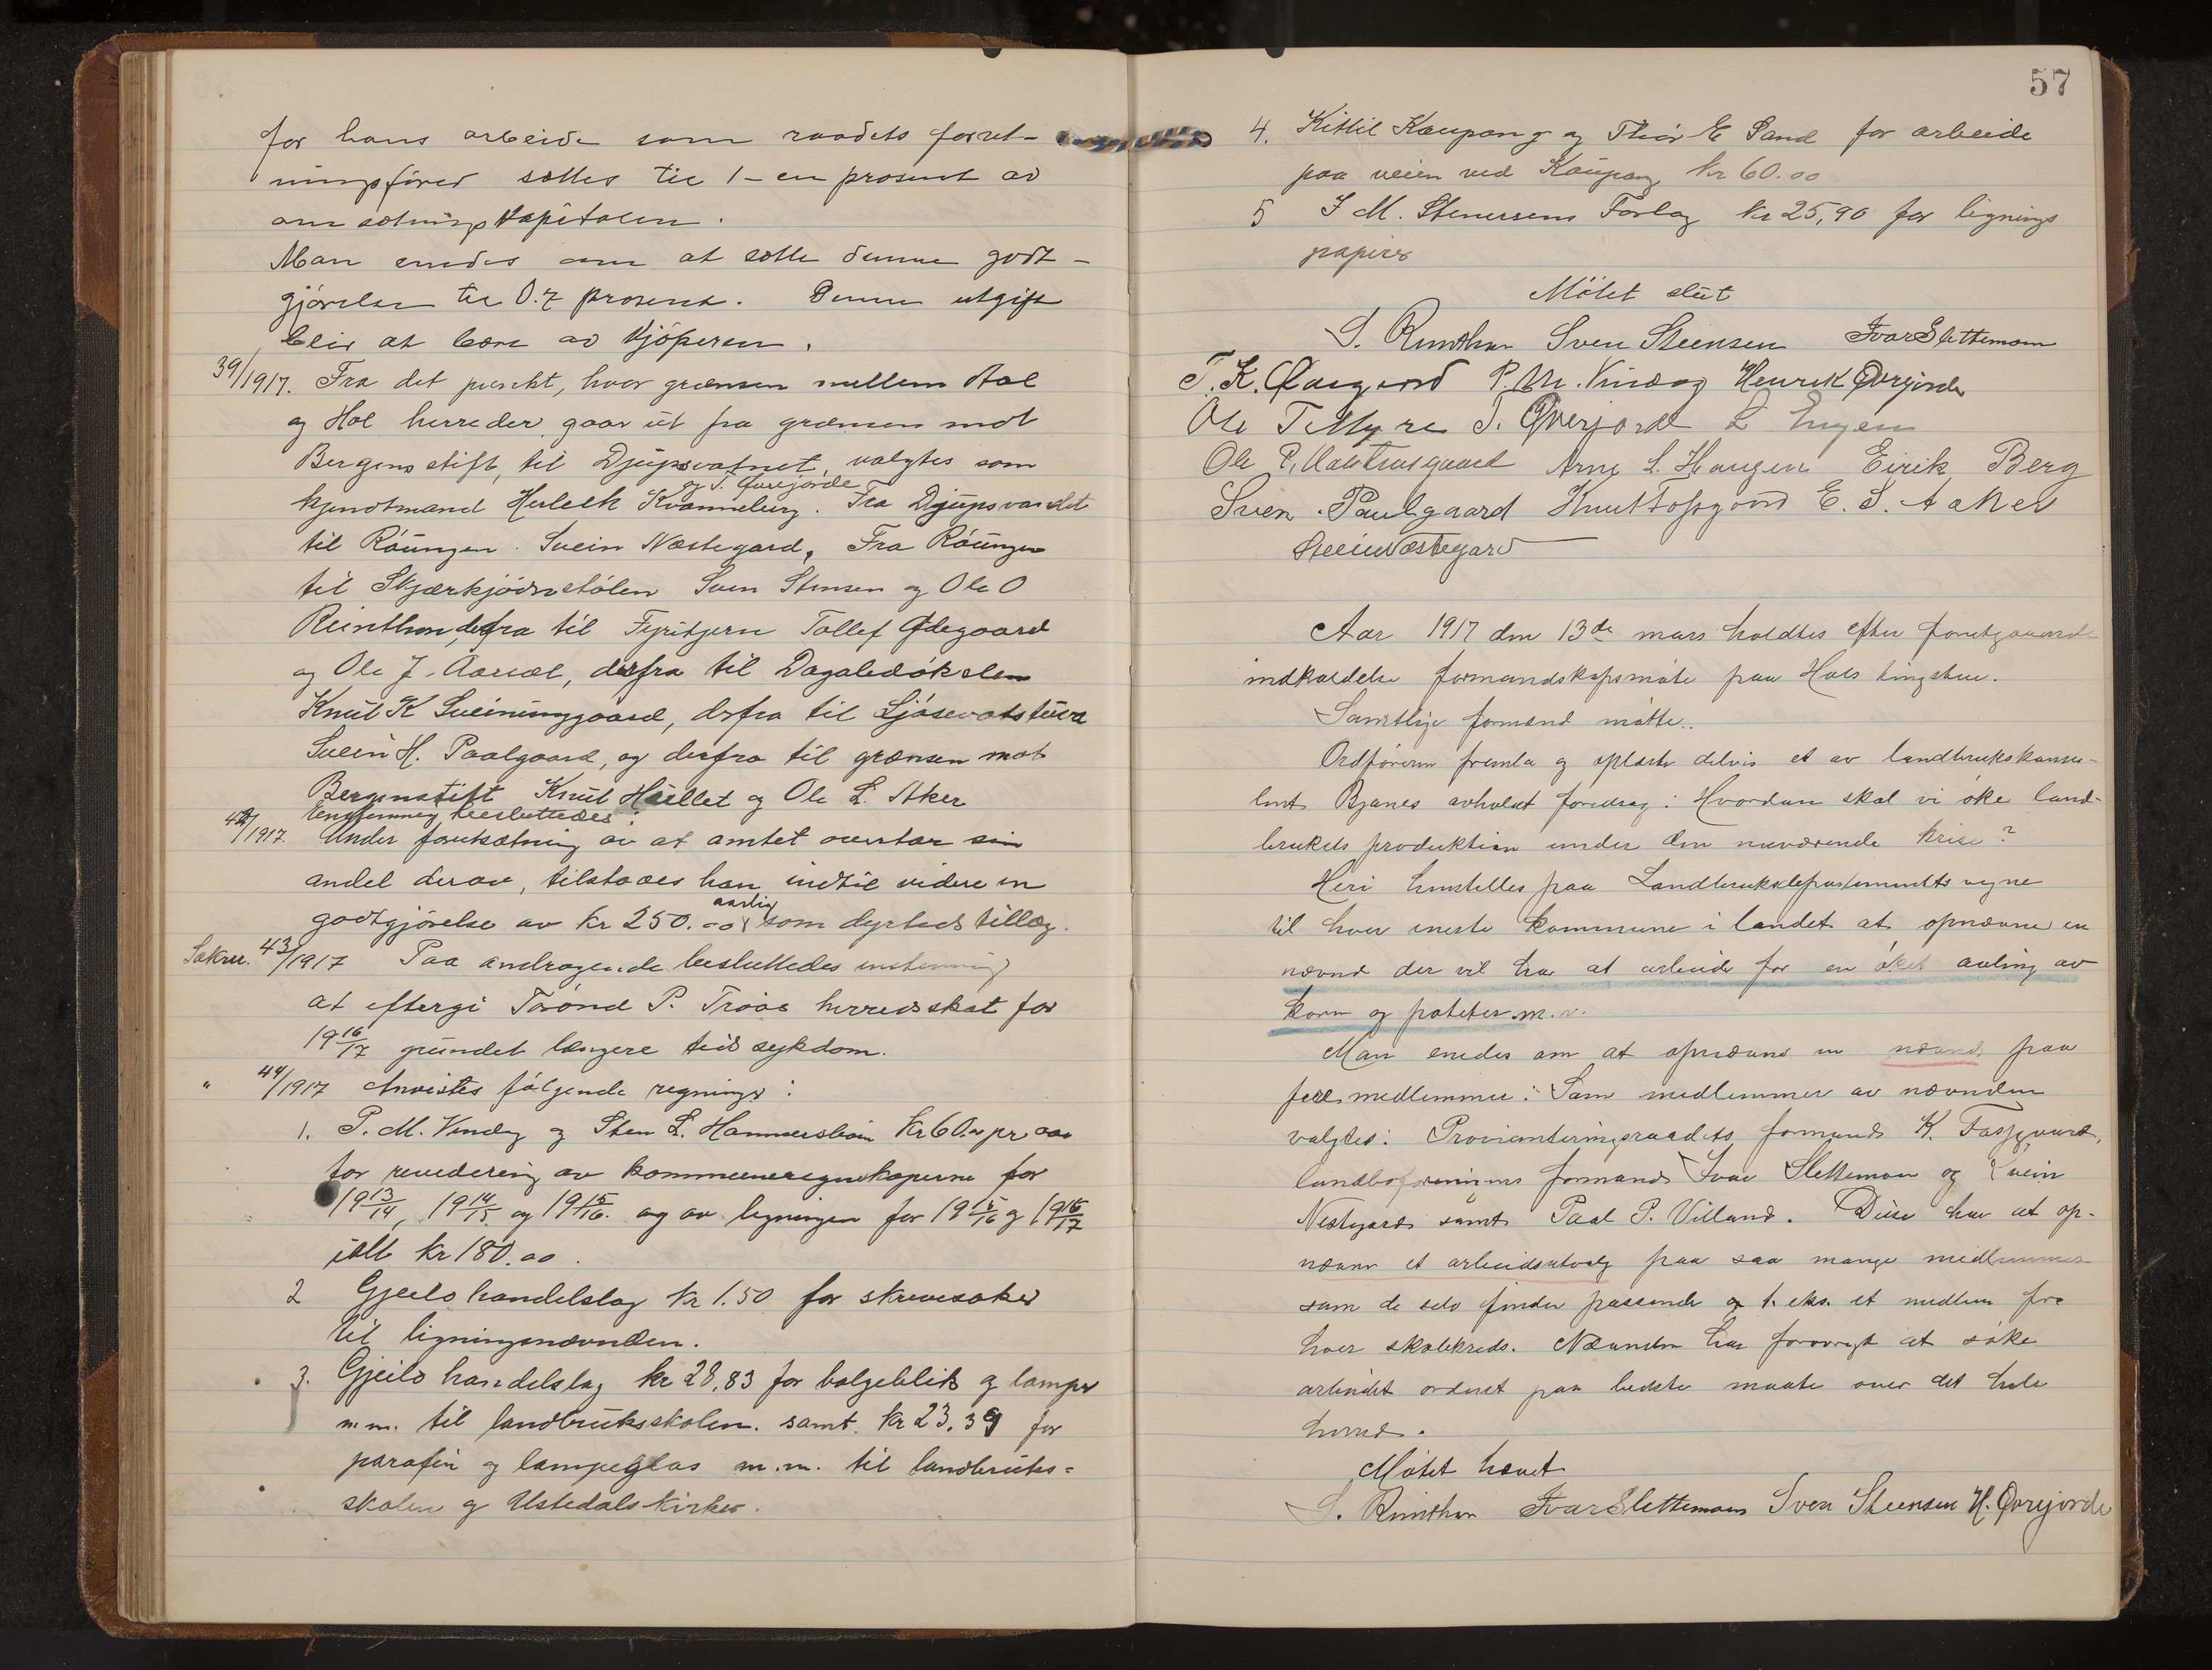 for hans arbeide som raadets forret-
ningsfører sættes til 1 - en prosent av
omsætningskapitalen.
Man enedes om at sætte denne godt-
gjørelse til 0.7 prosent. Denne utgift
blir at bære av kjøperen.
39/1917. Fra det punkt, hvor grænsen mellem Aal
og Hol herreder gaar ut fra grænsen mot
Bergens stift, til Djupsvatnet, valgtes som
og T. Øvrejorde
kjendtmand Herleik Kvanneberg. Fra Djupsvandet
til Raungen Svein Næstegard, Fra Raungen
til Skjærkjødnstølen Sven Stensen og Ole O
Reinthon, derfra til Fyritjern Tollef Ødegaard
og Ole J. Aarsæt, derfra til Dagaledøkelen
Knut K Sveinunggaard, derfra til
Svein H. Paalgaard, og derfra til grænsen mot
Bergenstift Knut og Ole L. Aker
Enstemmig besluttedes:
42/1917. Under forutsætning av at amtet overtar sin
andel derav, tilstaaes han indtil videre en
aarlig
godtgjørelse av kr 250.00 som dyrtidstillæg.
43/1917 Paa andragende besluttedes enstemmig
at eftergi Trond P. Trøos herredsskat for
19 16/17 grundet længere tids sykdom.
" 44/1917 Anvistes følgende regninger:
1. P. M. Vindeg og Sten L. Hammersbøin Kr 60.00 pr aar
for revidering av kommuneregnskaperne for
19 13/14, 19 14/15 og 19 15/16. og av ligningen for 19 15/16 og 19 16/17
ialt kr 180.00.
2 Gjeilo handelslag kr 1.50 for skrivesaker
til ligningsnævnden.
3. Gjeilo handelslag kr 28.83 for bølgeblik og lamper
m.m. til landbruksskolen. samt kr 23.39 for
parafin og lampeglas m.m. til landbruks=
skolen og Ustedalskirken.
57
4. Kittil Kaupang og Thor E Sand for arbeide
paa veien ved Kaupang kr 60.00
5 J M. Stenersens Forlag kr 25,90 for lignings
papirer
Møtet slut
S. Rinthon Sven Steensen Ivar Slettemoen
T. K. P. M. Vindeg Henrik Øvrejorde
Ole T Myre T. Øverjorde L Engen
Ole P. Arne L. Haugen Eirik Berg
Svein Paulgaard Knut Fossgård E. S. Aaker
Svein Næstegard
Aar 1917 den 13de mars holdtes efter forutgaaende
indkaldelse formandskapsmøte paa Hols tingstue.
Samtlige formænd møtte.
Ordføreren fremla og oplæste delvis et av landbrukskonsu-
lent Bjanes avholdt foredrag: Hvordan skal vi øke land-
brukets produktion under den nuværende krise?
Heri henstilles paa Landbruksdepartementets vegne
til hver eneste kommune i landet at opnævne en
nævnd der vil ha at arbeide for en øket avling av
korn og poteter m.v.
Man enedes om at opnævne en nævnd paa
fire medlemmer: Som medlemmer av nævnden
valgtes: Provianteringsraadets formand K. Fossgaard,
landboforeningens formand Ivar Slettemoen og Svein
Nestegard samt Paal P. Villand. Disse har at op-
nævne et arbeidsutvalg paa saa mange medlemmer
som de selv finder passende og t. eks. et medlem fra
hver skolekreds. Nævnden har forøvrigt at søke
arbeidet ordnet paa bedste maate over det hele
herred.
Møtet hævet
S. Rinthon Ivar Slettemoen Sven Steensen H. Øvrejorde